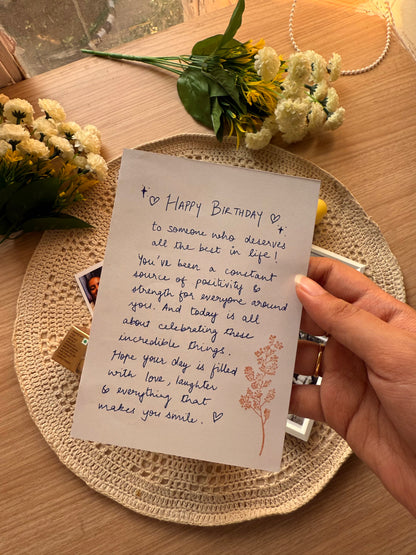 Happy Birthday
to someone who deserves
all the best in life!
You've been a constant
source of positivity &
strength for everyone around
you. And today is all
about celebrating these
incredible things.
Hope your day is filled
with love, laughter
& everything that
makes you smile.